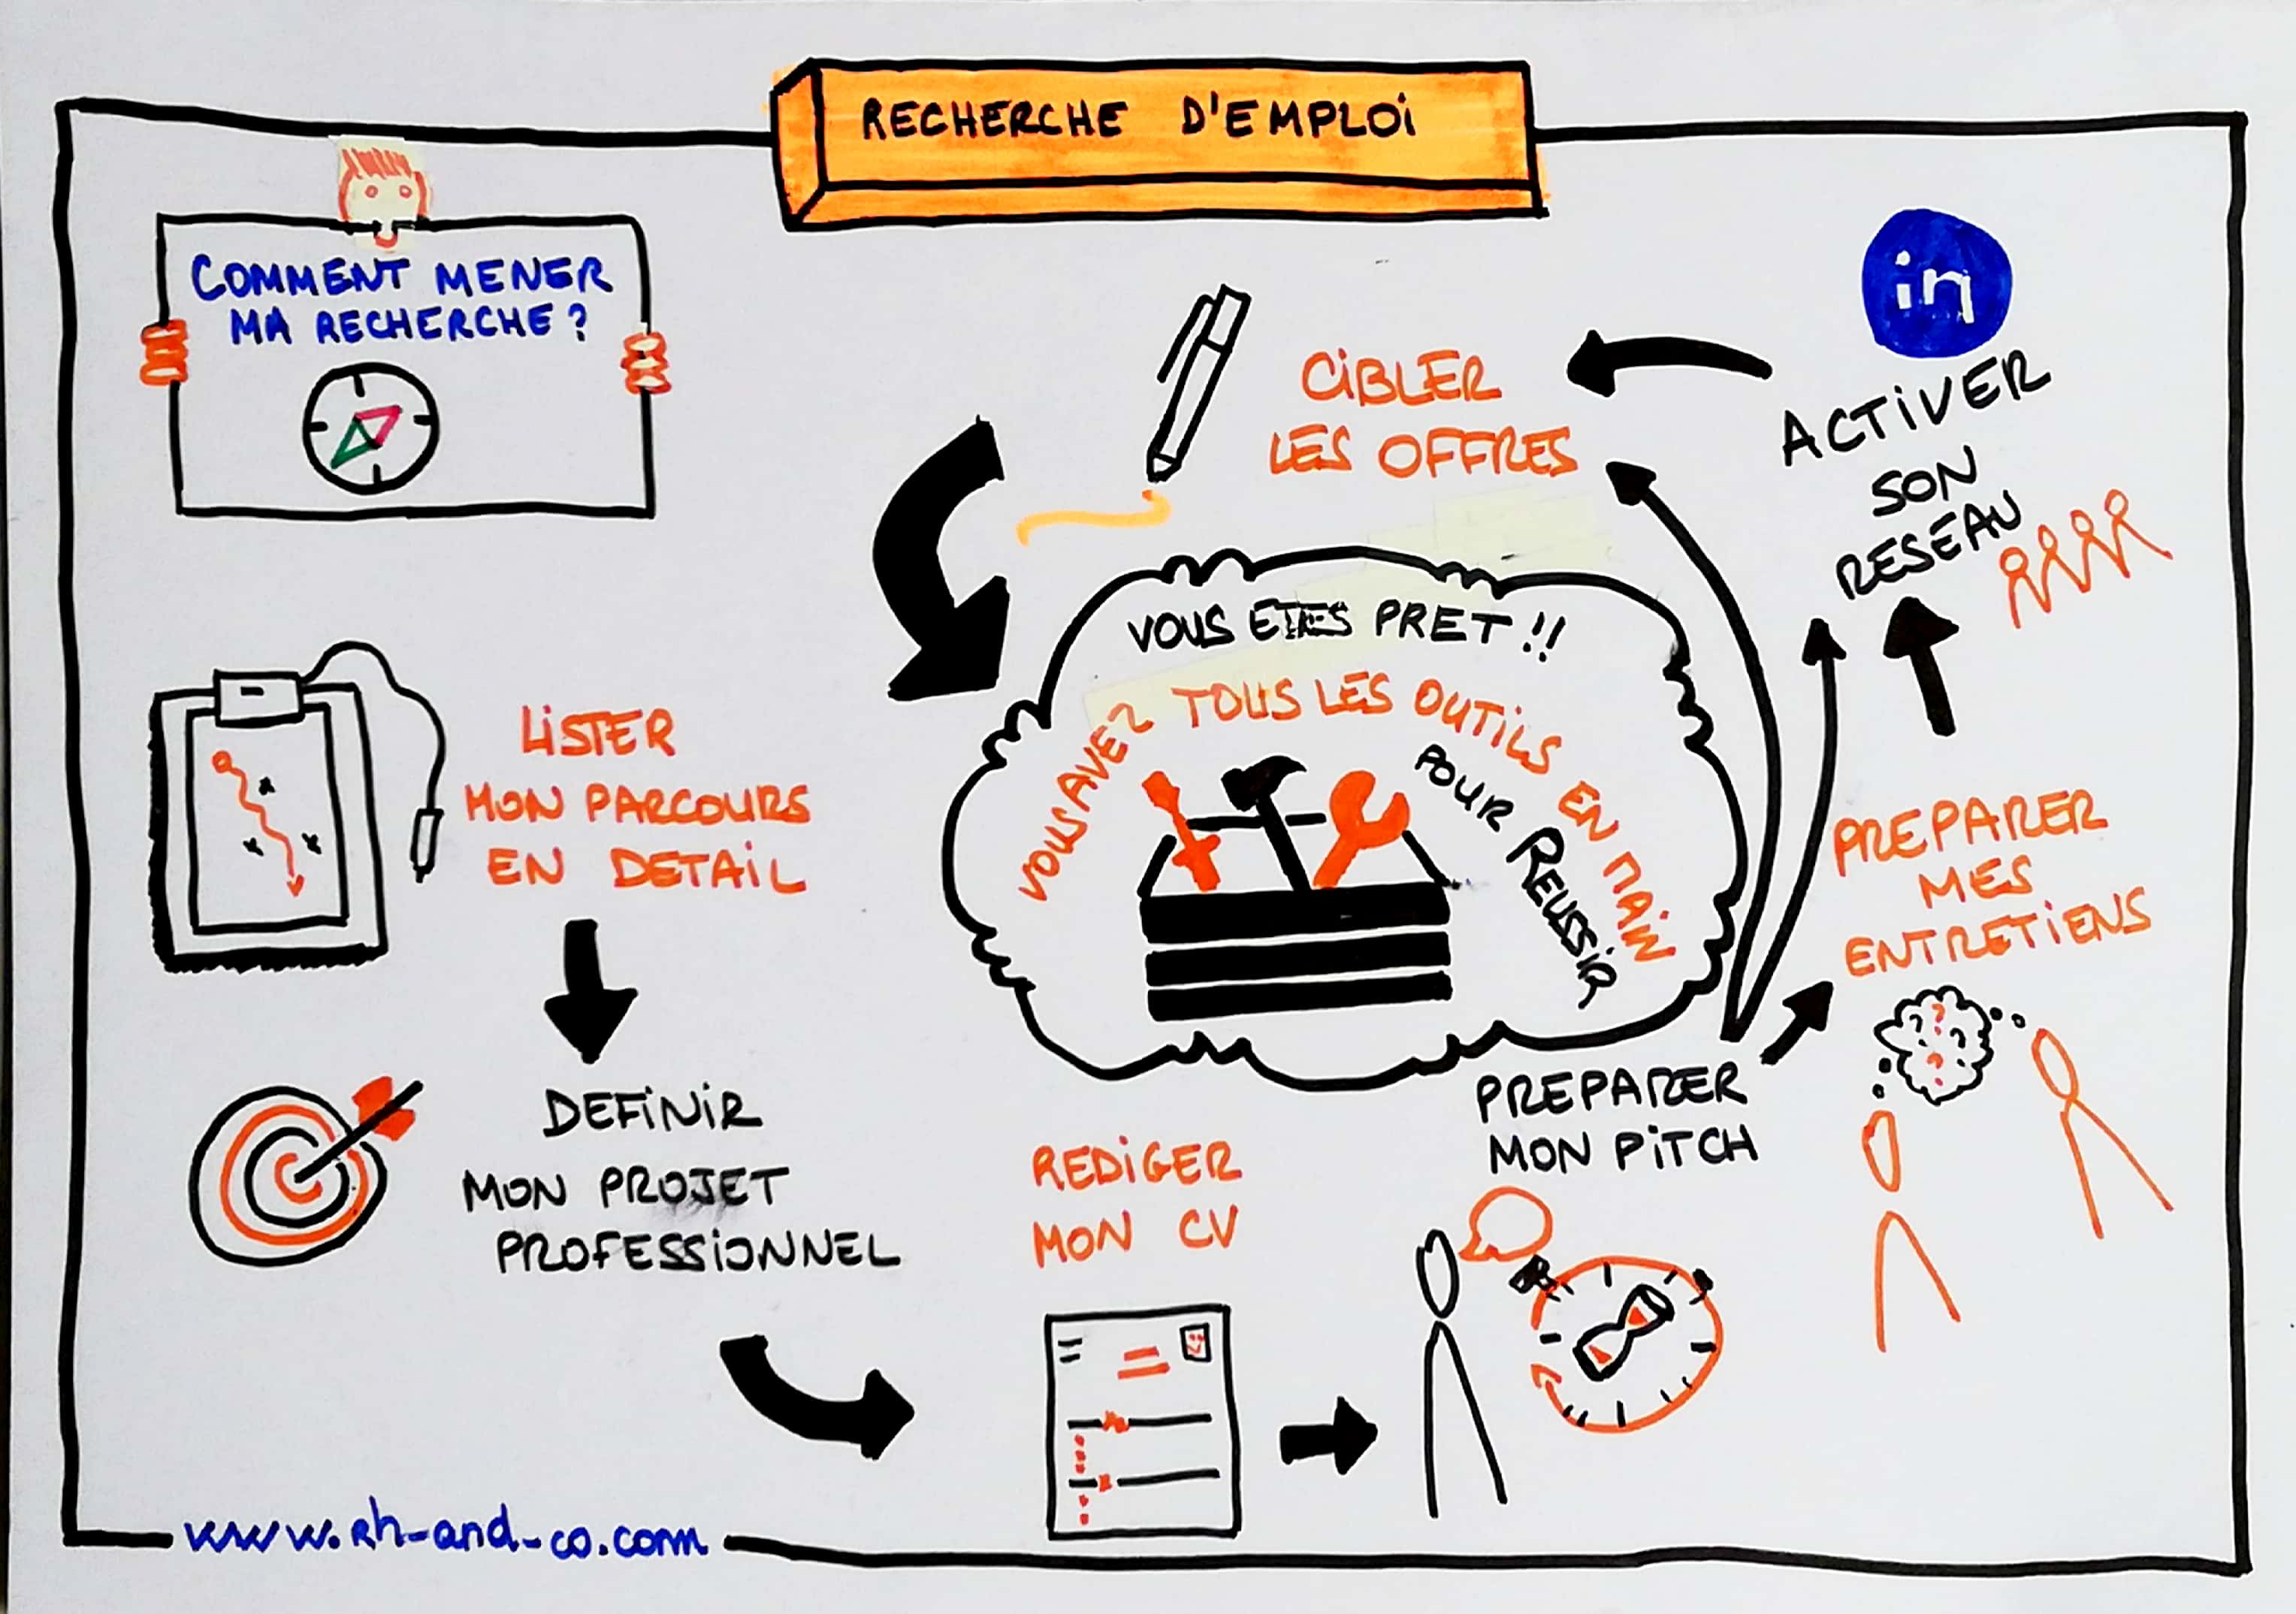 RECHERCHE D'EMPLOI
COMMENT MENER
MA RECHERCHE ?
LISTER
MON PARCOURS
EN DETAIL
DEFINIR
MON PROJET
PROFESSIONNEL
REDIGER
MON CV
PREPARER
MON PITCH
PREPARER
MES
ENTRETIENS
in
ACTIVER
SON
RESEAU
CIBLER
LES OFFRES
VOUS ETES PRET !!
VOUS AVEZ TOUS LES OUTILS EN MAIN
POUR REUSSIR
www.rh-and-co.com